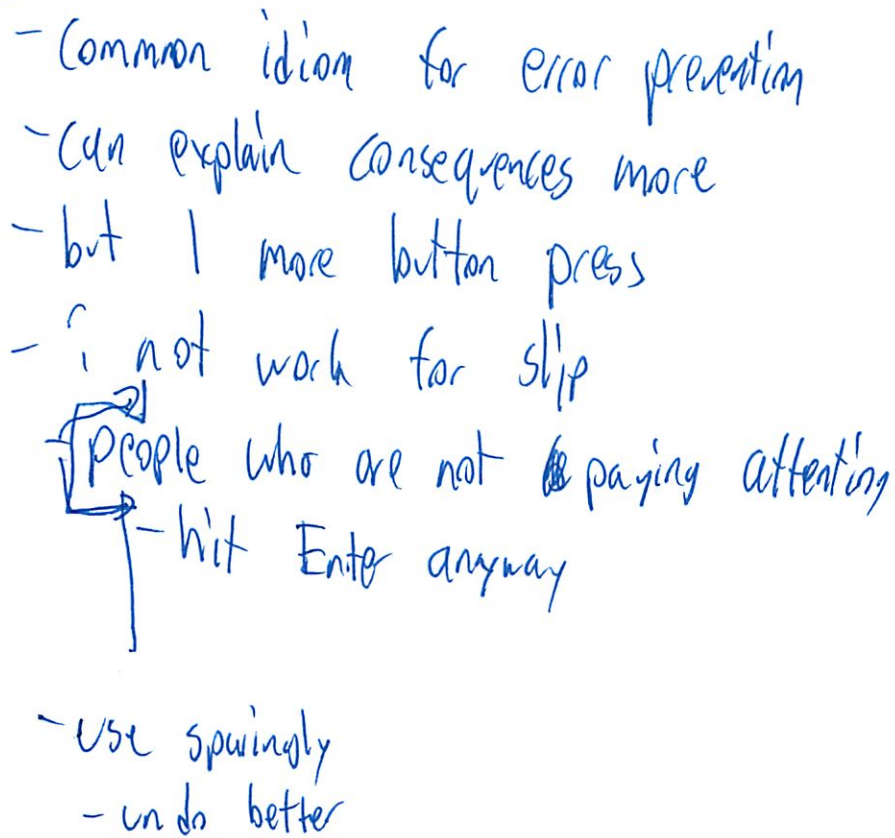 - Common idiom for error prevention
- Can explain consequences more
- but 1 more button press
- ? not work for slip
- People who are not paying attenting
- hit Enter anyway
- use sparingly
- undo better